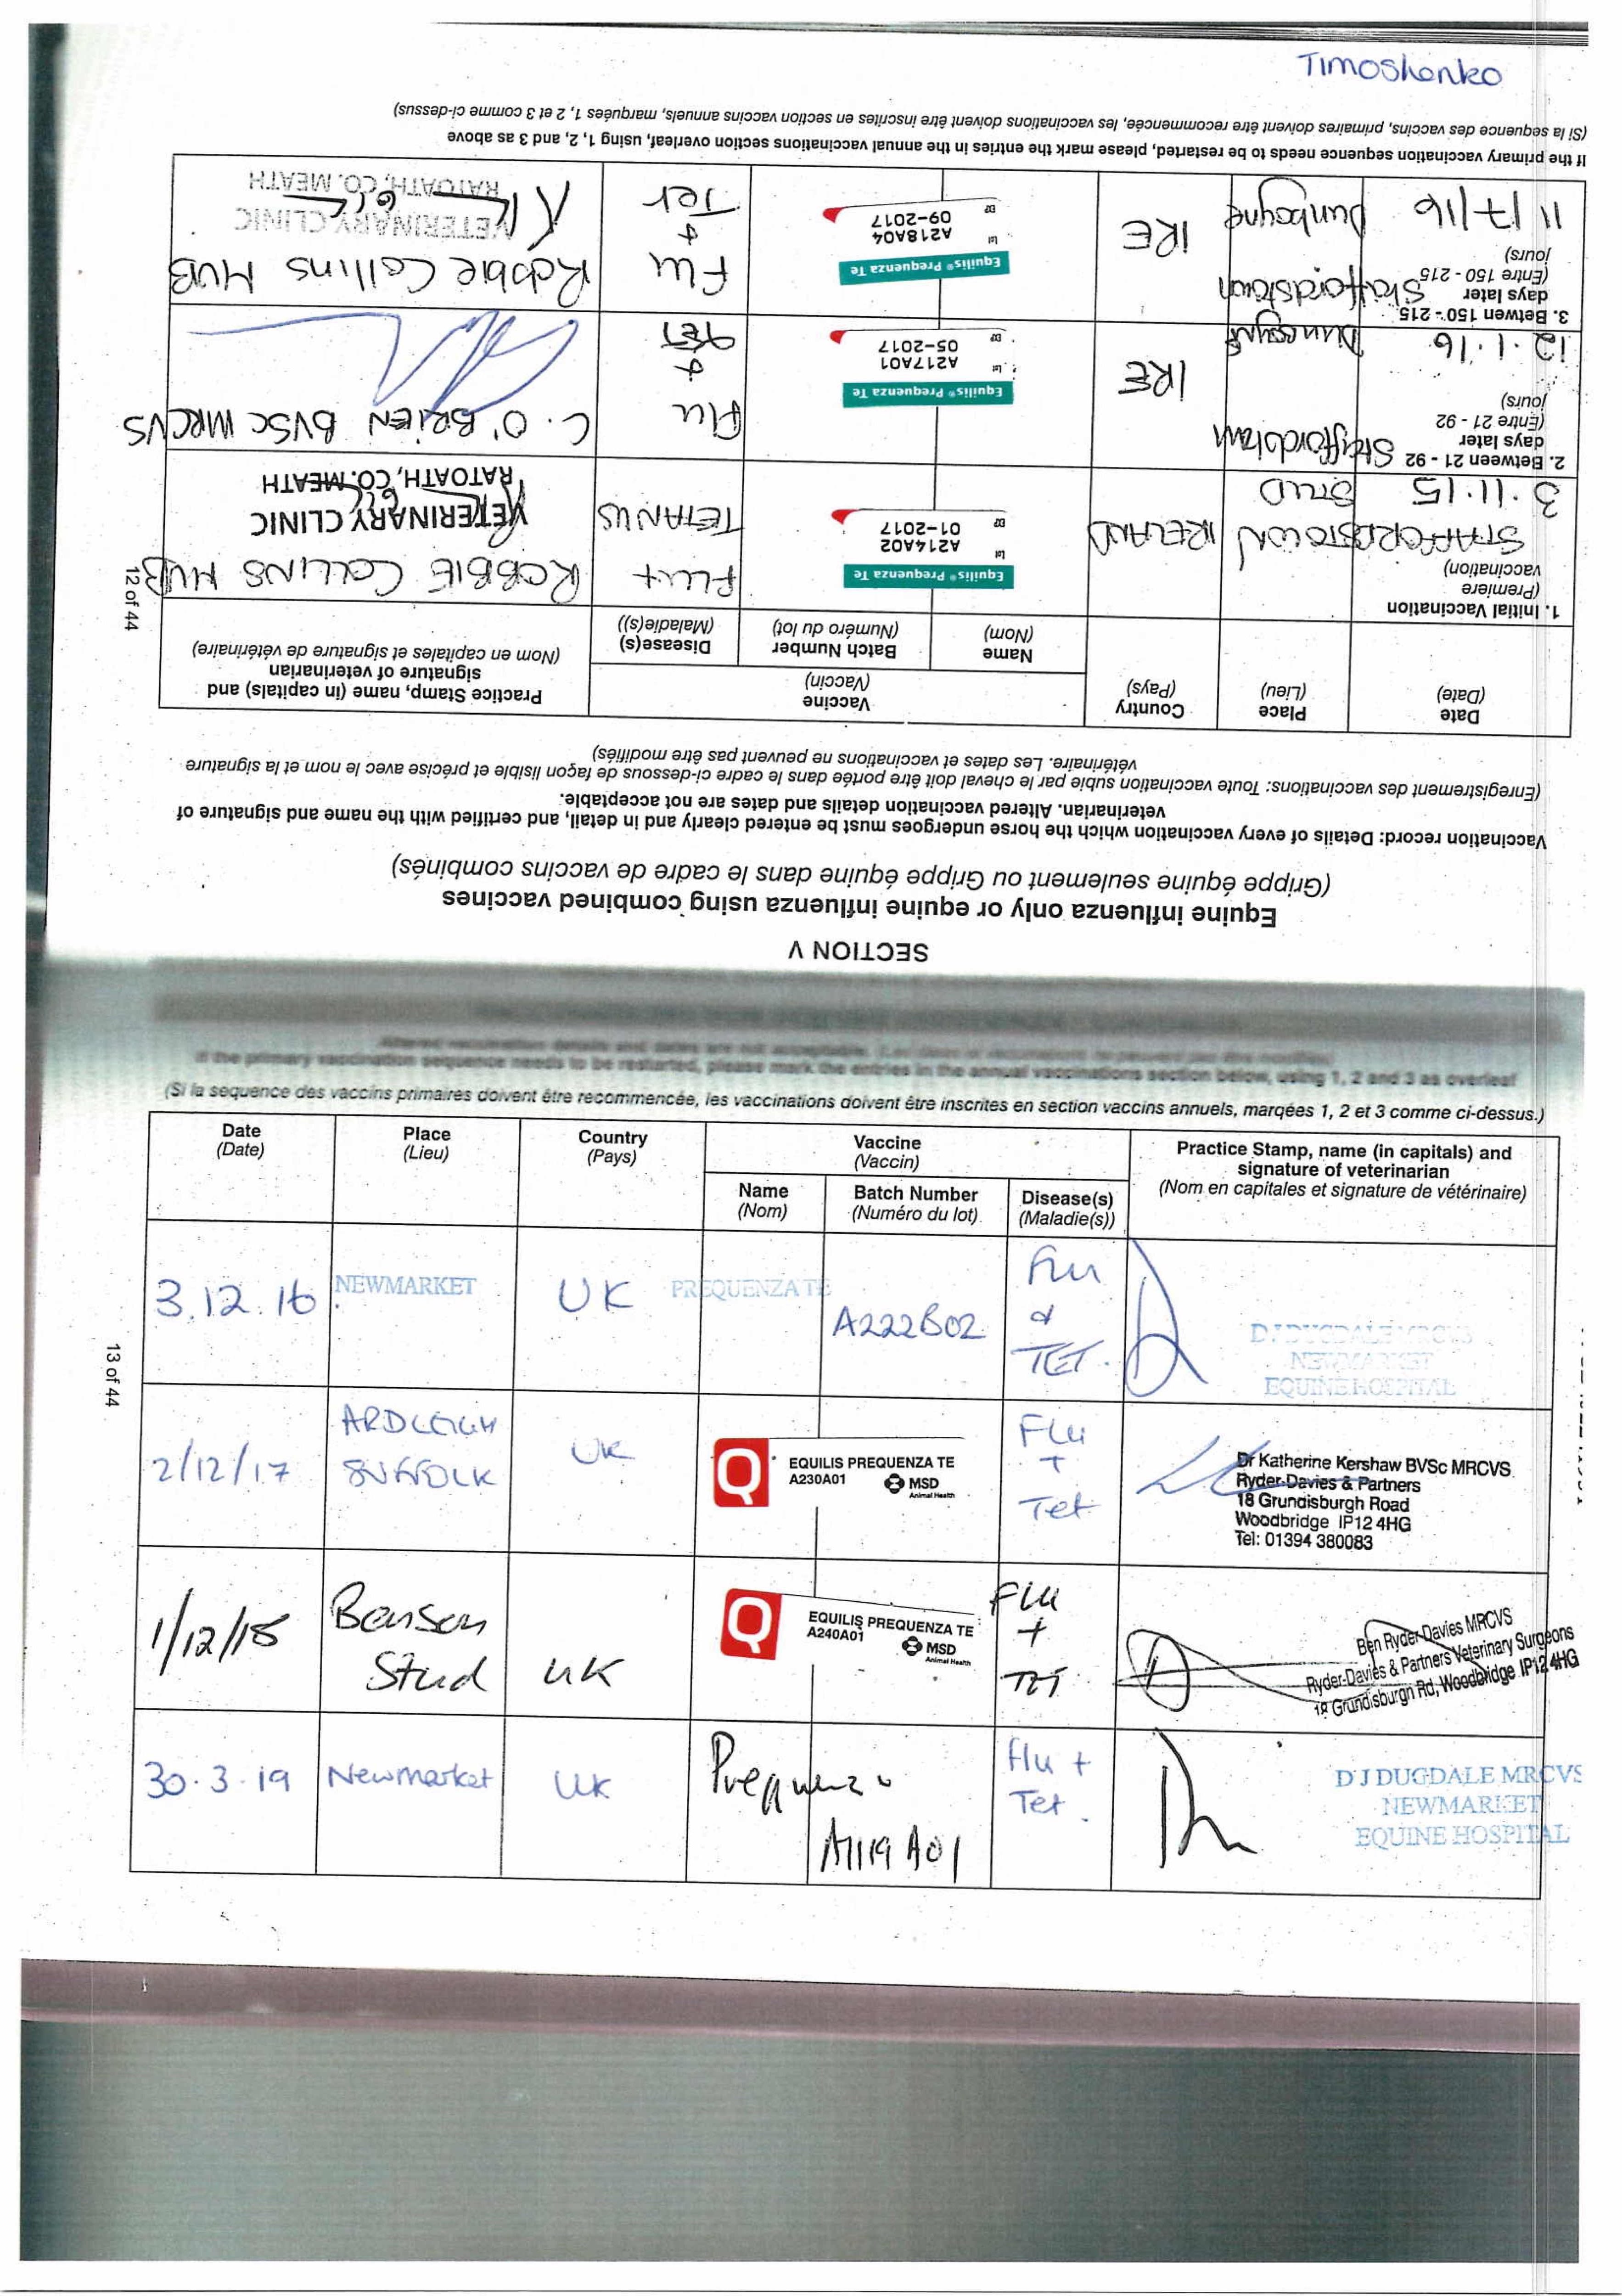 Timoshenko
SECTION V
Equine influenza only or equine influenza using combined vaccines
(Grippe équine seulement ou Grippe équine dans le cadre de vaccins combinés)
Vaccination record: Details of every vaccination which the horse undergoes must be entered clearly and in detail, and certified with the name and signature of
veterinarian. Altered vaccination details and dates are not acceptable.
(Enregistrement des vaccinations: Toute vaccination subie par le cheval doit être portée dans le cadre ci-dessous de façon lisible et précise avec le nom et la signature
vétérinaire. Les dates et vaccinations ne peuvent pas être modifiés)
Date
(Date)
Place
(Lieu)
Country
(Pays)
Vaccine
(Vaccin)
Name
(Nom)
Batch Number
(Numéro du lot)
Disease(s)
(Maladie(s))
Practice Stamp, name (in capitals) and
signature of veterinarian
(Nom en capitales et signature de vétérinaire)
1. Initial Vaccination
(Premiere
vaccination)
3.11.15
STAFFORDSTOWN
STUD
IRELAND
Equilis® Prequenza Te
Lot A214A02
EXP 01-2017
FLU +
TETANUS
ROBBIE COLLINS MVB
VETERINARY CLINIC
RATOATH, CO. MEATH
2. Between 21 - 92
days later
(Entre 21 - 92
jours)
12.1.16
Staffordstown
IRE
Equilis® Prequenza Te
Lot A217A01
EXP 05-2017
Flu
+
TET
C. O'BRIEN BVSC MRCVS
3. Betwen 150 - 215
days later
(Entre 150 - 215
jours)
11/7/16
Staffordstown
Dunboyne
IRE
Equilis® Prequenza Te
Lot A218A04
EXP 09-2017
Flu
+
Tet
Robbie Collins MVB
VETERINARY CLINIC
RATOATH, CO. MEATH
If the primary vaccination sequence needs to be restarted, please mark the entries in the annual vaccinations section overleaf, using 1, 2, and 3 as above
(Si la sequence des vaccins, primaires doivent être recommencée, les vaccinations doivent être inscrites en section vaccins annuels, marquées 1, 2 et 3 comme ci-dessus)
12 of 44
If the primary vaccination sequence needs to be restarted, please mark the entries in the annual vaccinations section below, using 1, 2 and 3 as overleaf
(Si la sequence des vaccins primaires doivent être recommencée, les vaccinations doivent être inscrites en section vaccins annuels, marqées 1, 2 et 3 comme ci-dessus.)
Date
(Date)
Place
(Lieu)
Country
(Pays)
Vaccine
(Vaccin)
Name
(Nom)
Batch Number
(Numéro du lot)
Disease(s)
(Maladie(s))
Practice Stamp, name (in capitals) and
signature of veterinarian
(Nom en capitales et signature de vétérinaire)
3.12.16
NEWMARKET
UK
PREQUENZA TE
A222B02
Flu
&
TET.
D J DUGDALE MRCVS
NEWMARKET
EQUINE HOSPITAL
2/12/17
ARDLEIGH
SUFFOLK
UK
EQUILIS PREQUENZA TE
A230A01
MSD
Animal Health
Flu
+
Tet
Dr Katherine Kershaw BVSc MRCVS
Ryder-Davies & Partners
18 Grundisburgh Road
Woodbridge IP12 4HG
Tel: 01394 380083
1/12/18
Benson
Stud
UK
EQUILIS PREQUENZA TE
A240A01
MSD
Animal Health
FLU
+
TET
Ben Ryder-Davies MRCVS
Ryder-Davies & Partners Veterinary Surgeons
18 Grundisburgh Rd, Woodbridge IP12 4HG
30.3.19
Newmarket
UK
Prequenza
A119A01
Flu +
Tet.
D J DUGDALE MRCVS
NEWMARKET
EQUINE HOSPITAL
13 of 44